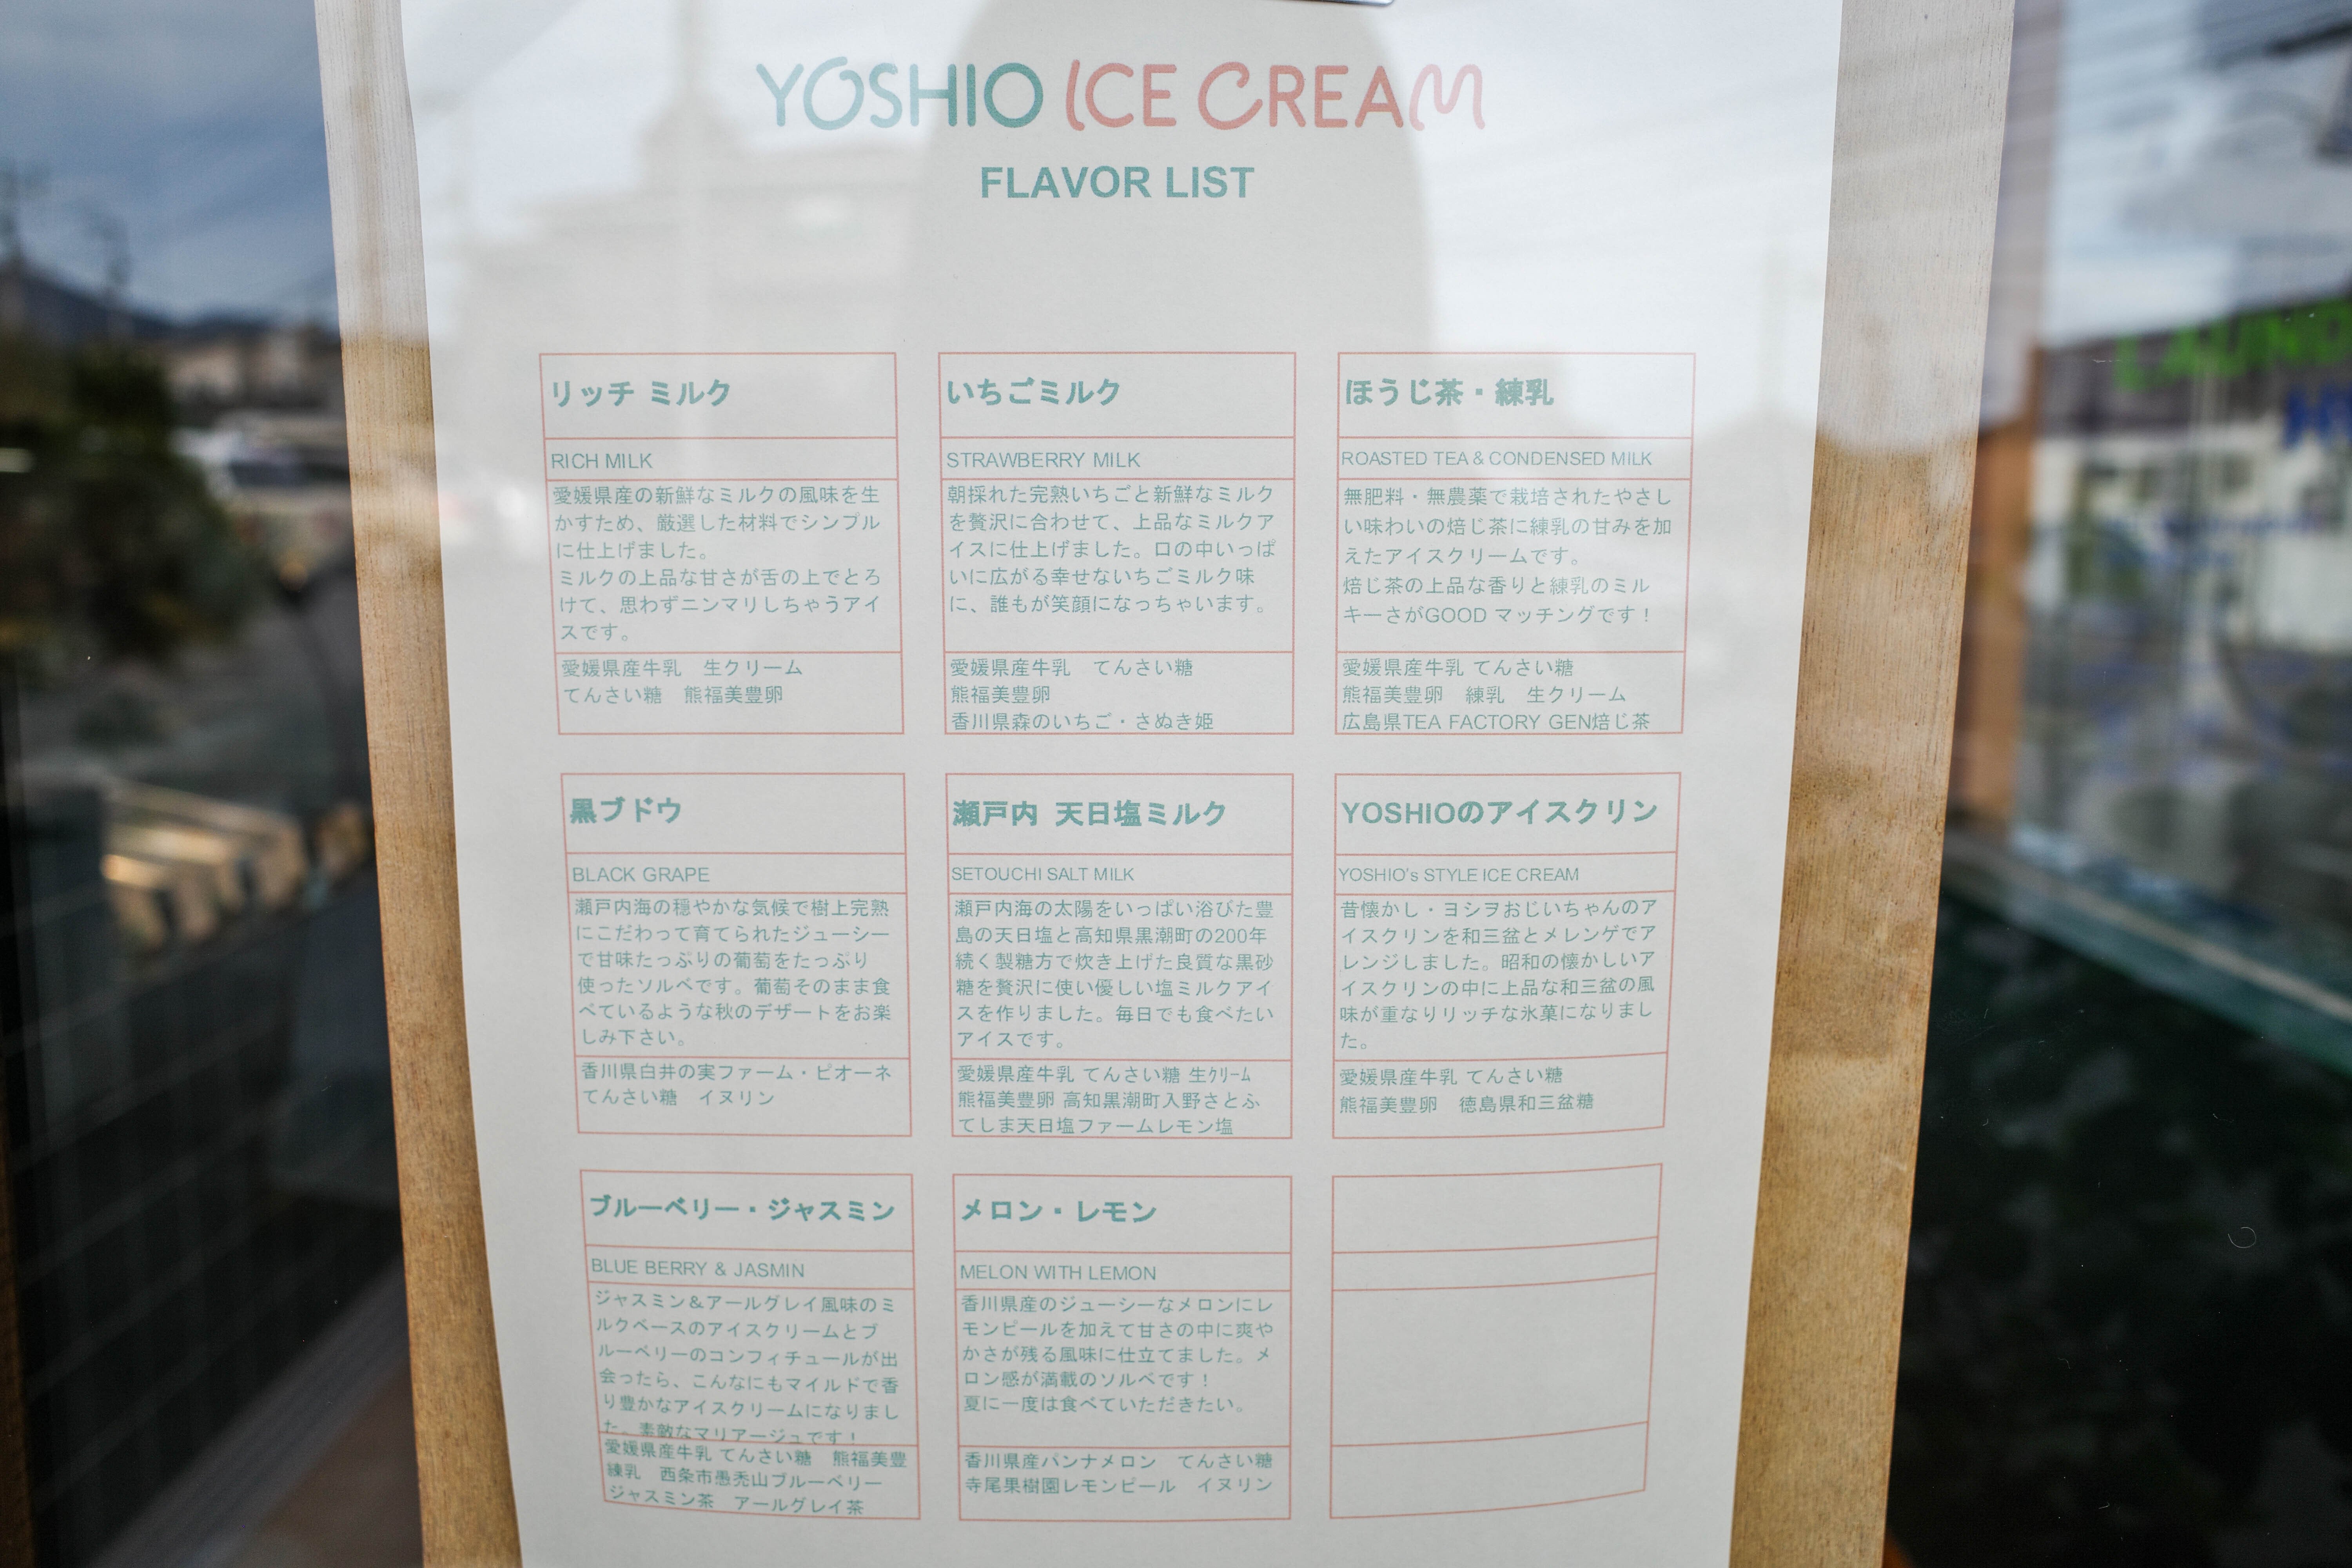 YOSHIO ICE CREAM
FLAVOR LIST
リッチ ミルク
RICH MILK
愛媛県産の新鮮なミルクの風味を生
かすため、厳選した材料でシンプル
に仕上げました。
ミルクの上品な甘さが舌の上でとろ
けて、思わずニンマリしちゃうアイ
スです。
愛媛県産牛乳　生クリーム
てんさい糖　熊福美豊卵
いちごミルク
STRAWBERRY MILK
朝採れた完熟いちごと新鮮なミルク
を贅沢に合わせて、上品なミルクア
イスに仕上げました。口の中いっぱ
いに広がる幸せないちごミルク味
に、誰もが笑顔になっちゃいます。
愛媛県産牛乳　てんさい糖
熊福美豊卵
香川県森のいちご・さぬき姫
ほうじ茶・練乳
ROASTED TEA & CONDENSED MILK
無肥料・無農薬で栽培されたやさし
い味わいの焙じ茶に練乳の甘みを加
えたアイスクリームです。
焙じ茶の上品な香りと練乳のミル
キーさがGOOD マッチングです！
愛媛県産牛乳 てんさい糖
熊福美豊卵　練乳　生クリーム
広島県TEA FACTORY GEN焙じ茶
黒ブドウ
BLACK GRAPE
瀬戸内海の穏やかな気候で樹上完熟
にこだわって育てられたジューシー
で甘味たっぷりの葡萄をたっぷり
使ったソルベです。葡萄そのまま食
べているような秋のデザートをお楽
しみ下さい。
香川県白井の実ファーム・ピオーネ
てんさい糖　イヌリン
瀬戸内 天日塩ミルク
SETOUCHI SALT MILK
瀬戸内海の太陽をいっぱい浴びた豊
島の天日塩と高知県黒潮町の200年
続く製糖方で炊き上げた良質な黒砂
糖を贅沢に使い優しい塩ミルクアイ
スを作りました。毎日でも食べたい
アイスです。
愛媛県産牛乳 てんさい糖 生ｸﾘｰﾑ
熊福美豊卵 高知黒潮町入野さとふ
てしま天日塩ファームレモン塩
YOSHIOのアイスクリン
YOSHIO's STYLE ICE CREAM
昔懐かし・ヨシヲおじいちゃんのア
イスクリンを和三盆とメレンゲでア
レンジしました。昭和の懐かしいア
イスクリンの中に上品な和三盆の風
味が重なりリッチな氷菓になりまし
た。
愛媛県産牛乳 てんさい糖
熊福美豊卵　徳島県和三盆糖
ブルーベリー・ジャスミン
BLUE BERRY & JASMIN
ジャスミン＆アールグレイ風味のミ
ルクベースのアイスクリームとブ
ルーベリーのコンフィチュールが出
会ったら、こんなにもマイルドで香
り豊かなアイスクリームになりまし
た。素敵なマリアージュです！
愛媛県産牛乳 てんさい糖　熊福美豊
練乳　西条市愚禿山ブルーベリー
ジャスミン茶　アールグレイ茶
メロン・レモン
MELON WITH LEMON
香川県産のジューシーなメロンにレ
モンピールを加えて甘さの中に爽や
かさが残る風味に仕立てました。メ
ロン感が満載のソルベです！
夏に一度は食べていただきたい。
香川県産パンナメロン　てんさい糖
寺尾果樹園レモンピール　イヌリン